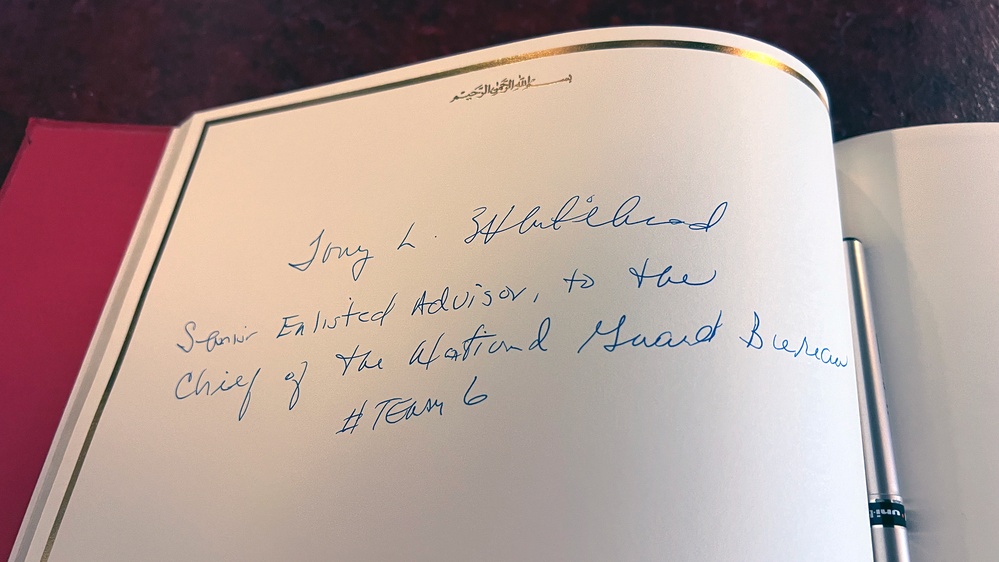 بسم الله الرحمن الرحيم
Tony L. Whitehead
Senior Enlisted Advisor, to the
Chief of the National Guard Bureau
# TEam 6
uni